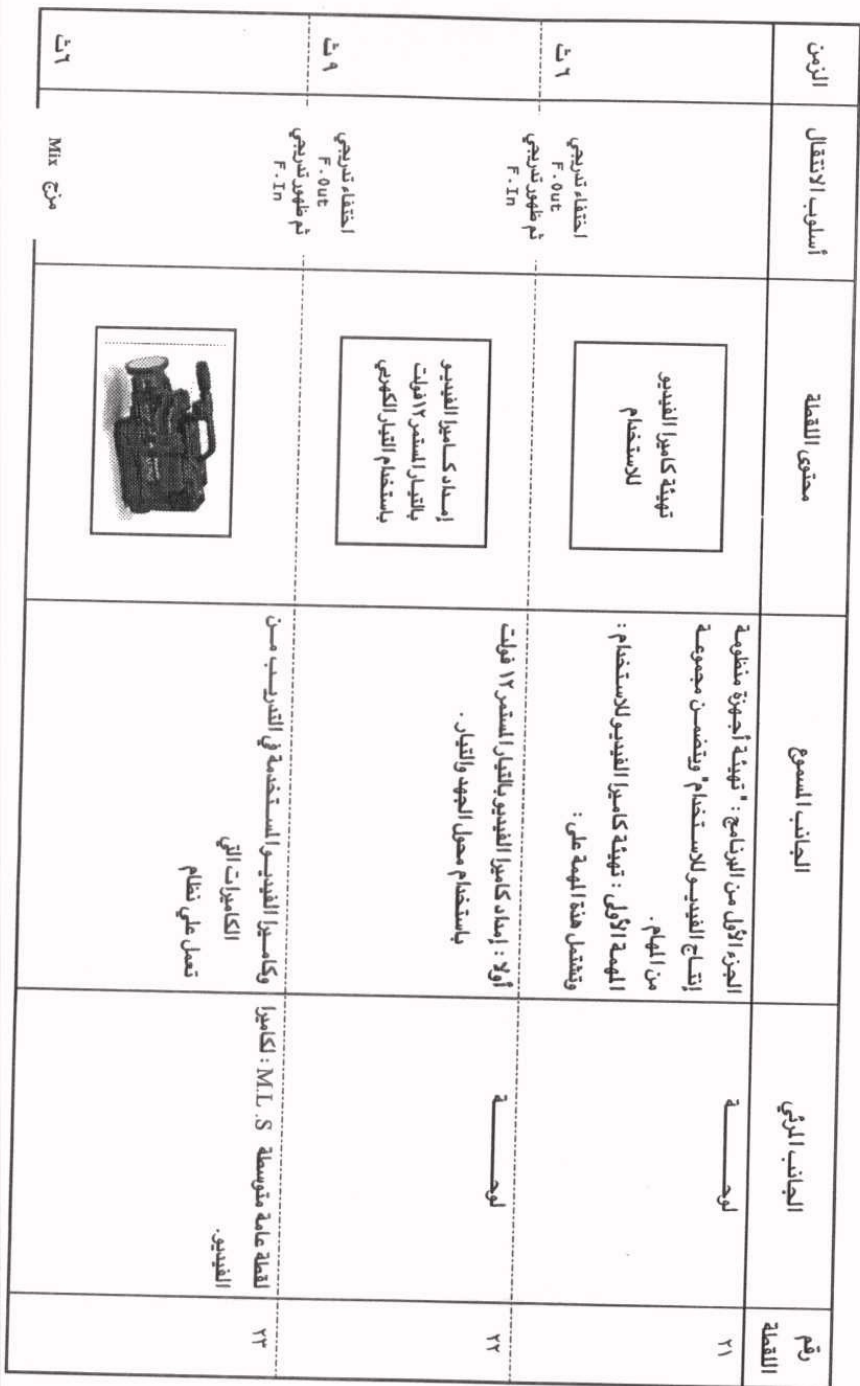 رقم
اللقطة
الجانب المرئي
الجانب المسموع
محتوى اللقطة
أسلوب الانتقال
الزمن
٢١
لوحـــــــــة
الجزء الأول من البرنامج : " تهيئة أجهزة منظومة
إنتاج الفيديو للاستخدام" ويتضمن مجموعة
من المهام .
المهمة الأولى : تهيئة كاميرا الفيديو للاستخدام :
وتشتمل هذة المهمة على :
تهيئة كاميرا الفيديو
للاستخدام
اختفاء تدريجي
F.Out
ثم ظهور تدريجي
F.In
٦ث
٢٢
لوحـــــــــة
أولا : إمداد كاميرا الفيديو بالتيار المستمر ١٢ فولت
باستخدام محول الجهد والتيار .
إمداد كاميرا الفيديو
بالتيار المستمر ١٢ فولت
باستخدام التيار الكهربي
اختفاء تدريجي
F.Out
ثم ظهور تدريجي
F.In
٩ث
٢٣
لقطة عامة متوسطة M.L .S : لكاميرا
الفيديو.
وكاميرا الفيديو المستخدمة في التدريب من
الكاميرات التي
تعمل علي نظام
مزج Mix
٦ث